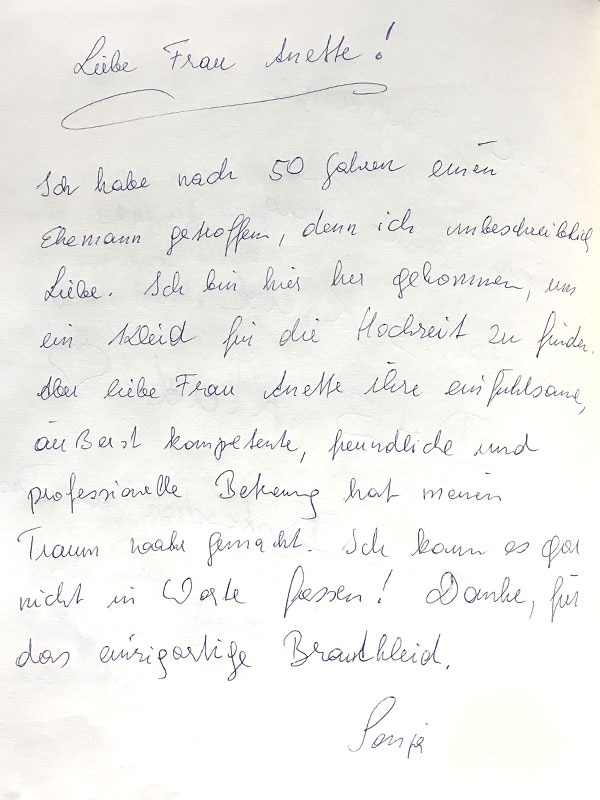 Liebe Frau Anette!
Ich habe nach 50 Jahren einen
Ehemann getroffen, denn ich unbeschreiblich
Liebe. Ich bin hier her gekommen, um
ein Kleid für die Hochzeit zu finden.
Aber liebe Frau Anette ihre einfühlsame,
äußerst kompetente, freundliche und
professionelle Betreung hat meinen
Traum wahr gemacht. Ich kann es gar
nicht in Worte fassen! Danke, für
das einzigartige Brautkleid.
Sonja